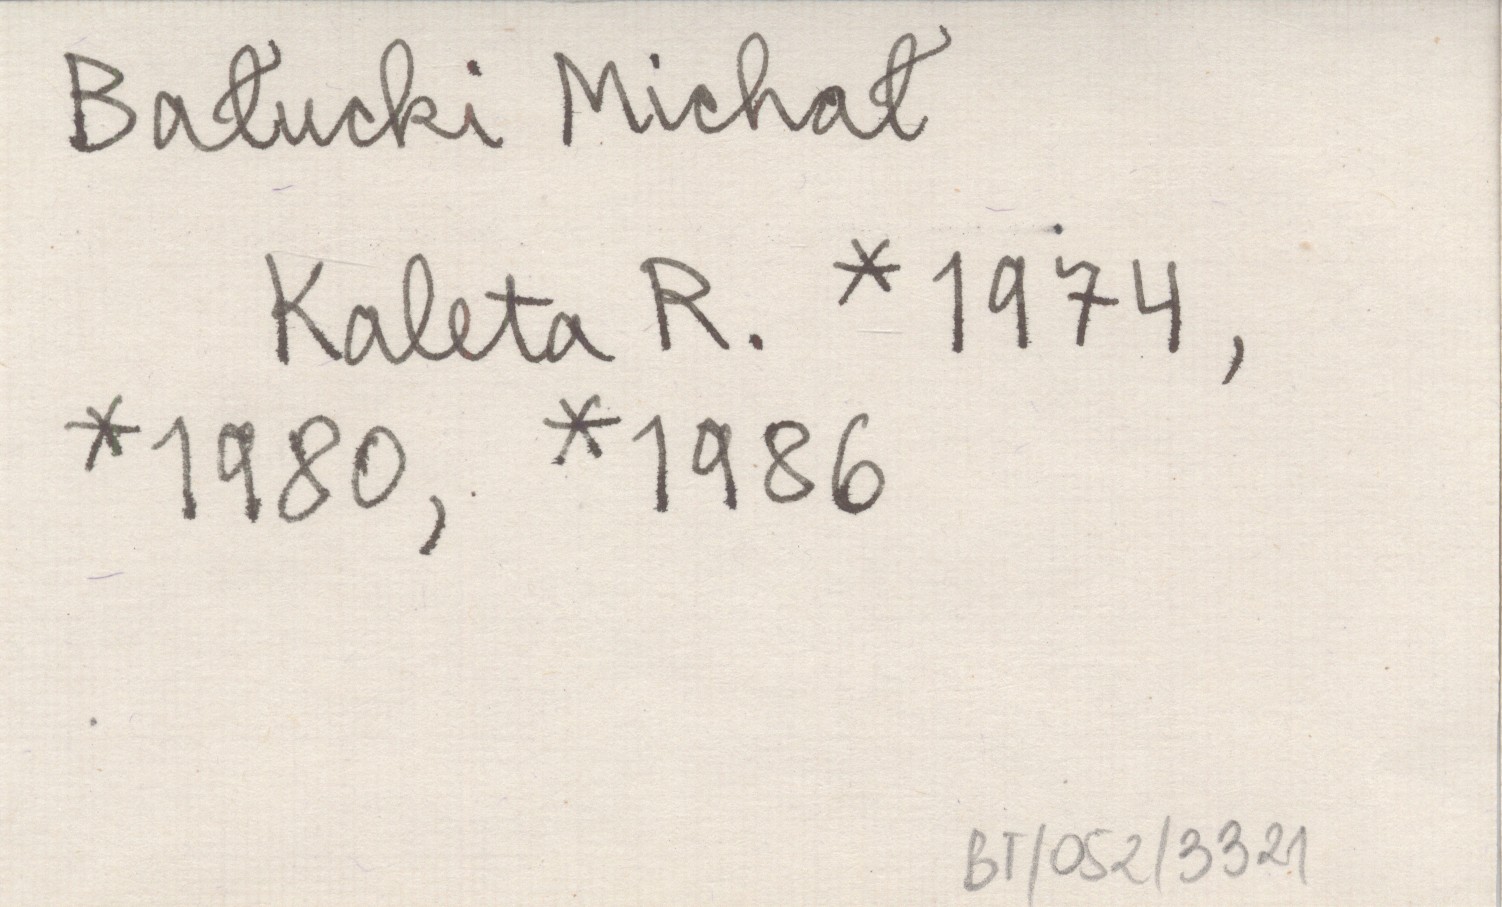 Bałucki Michał
Kaleta R. *1974,
*1980, *1986
BT/052/3321